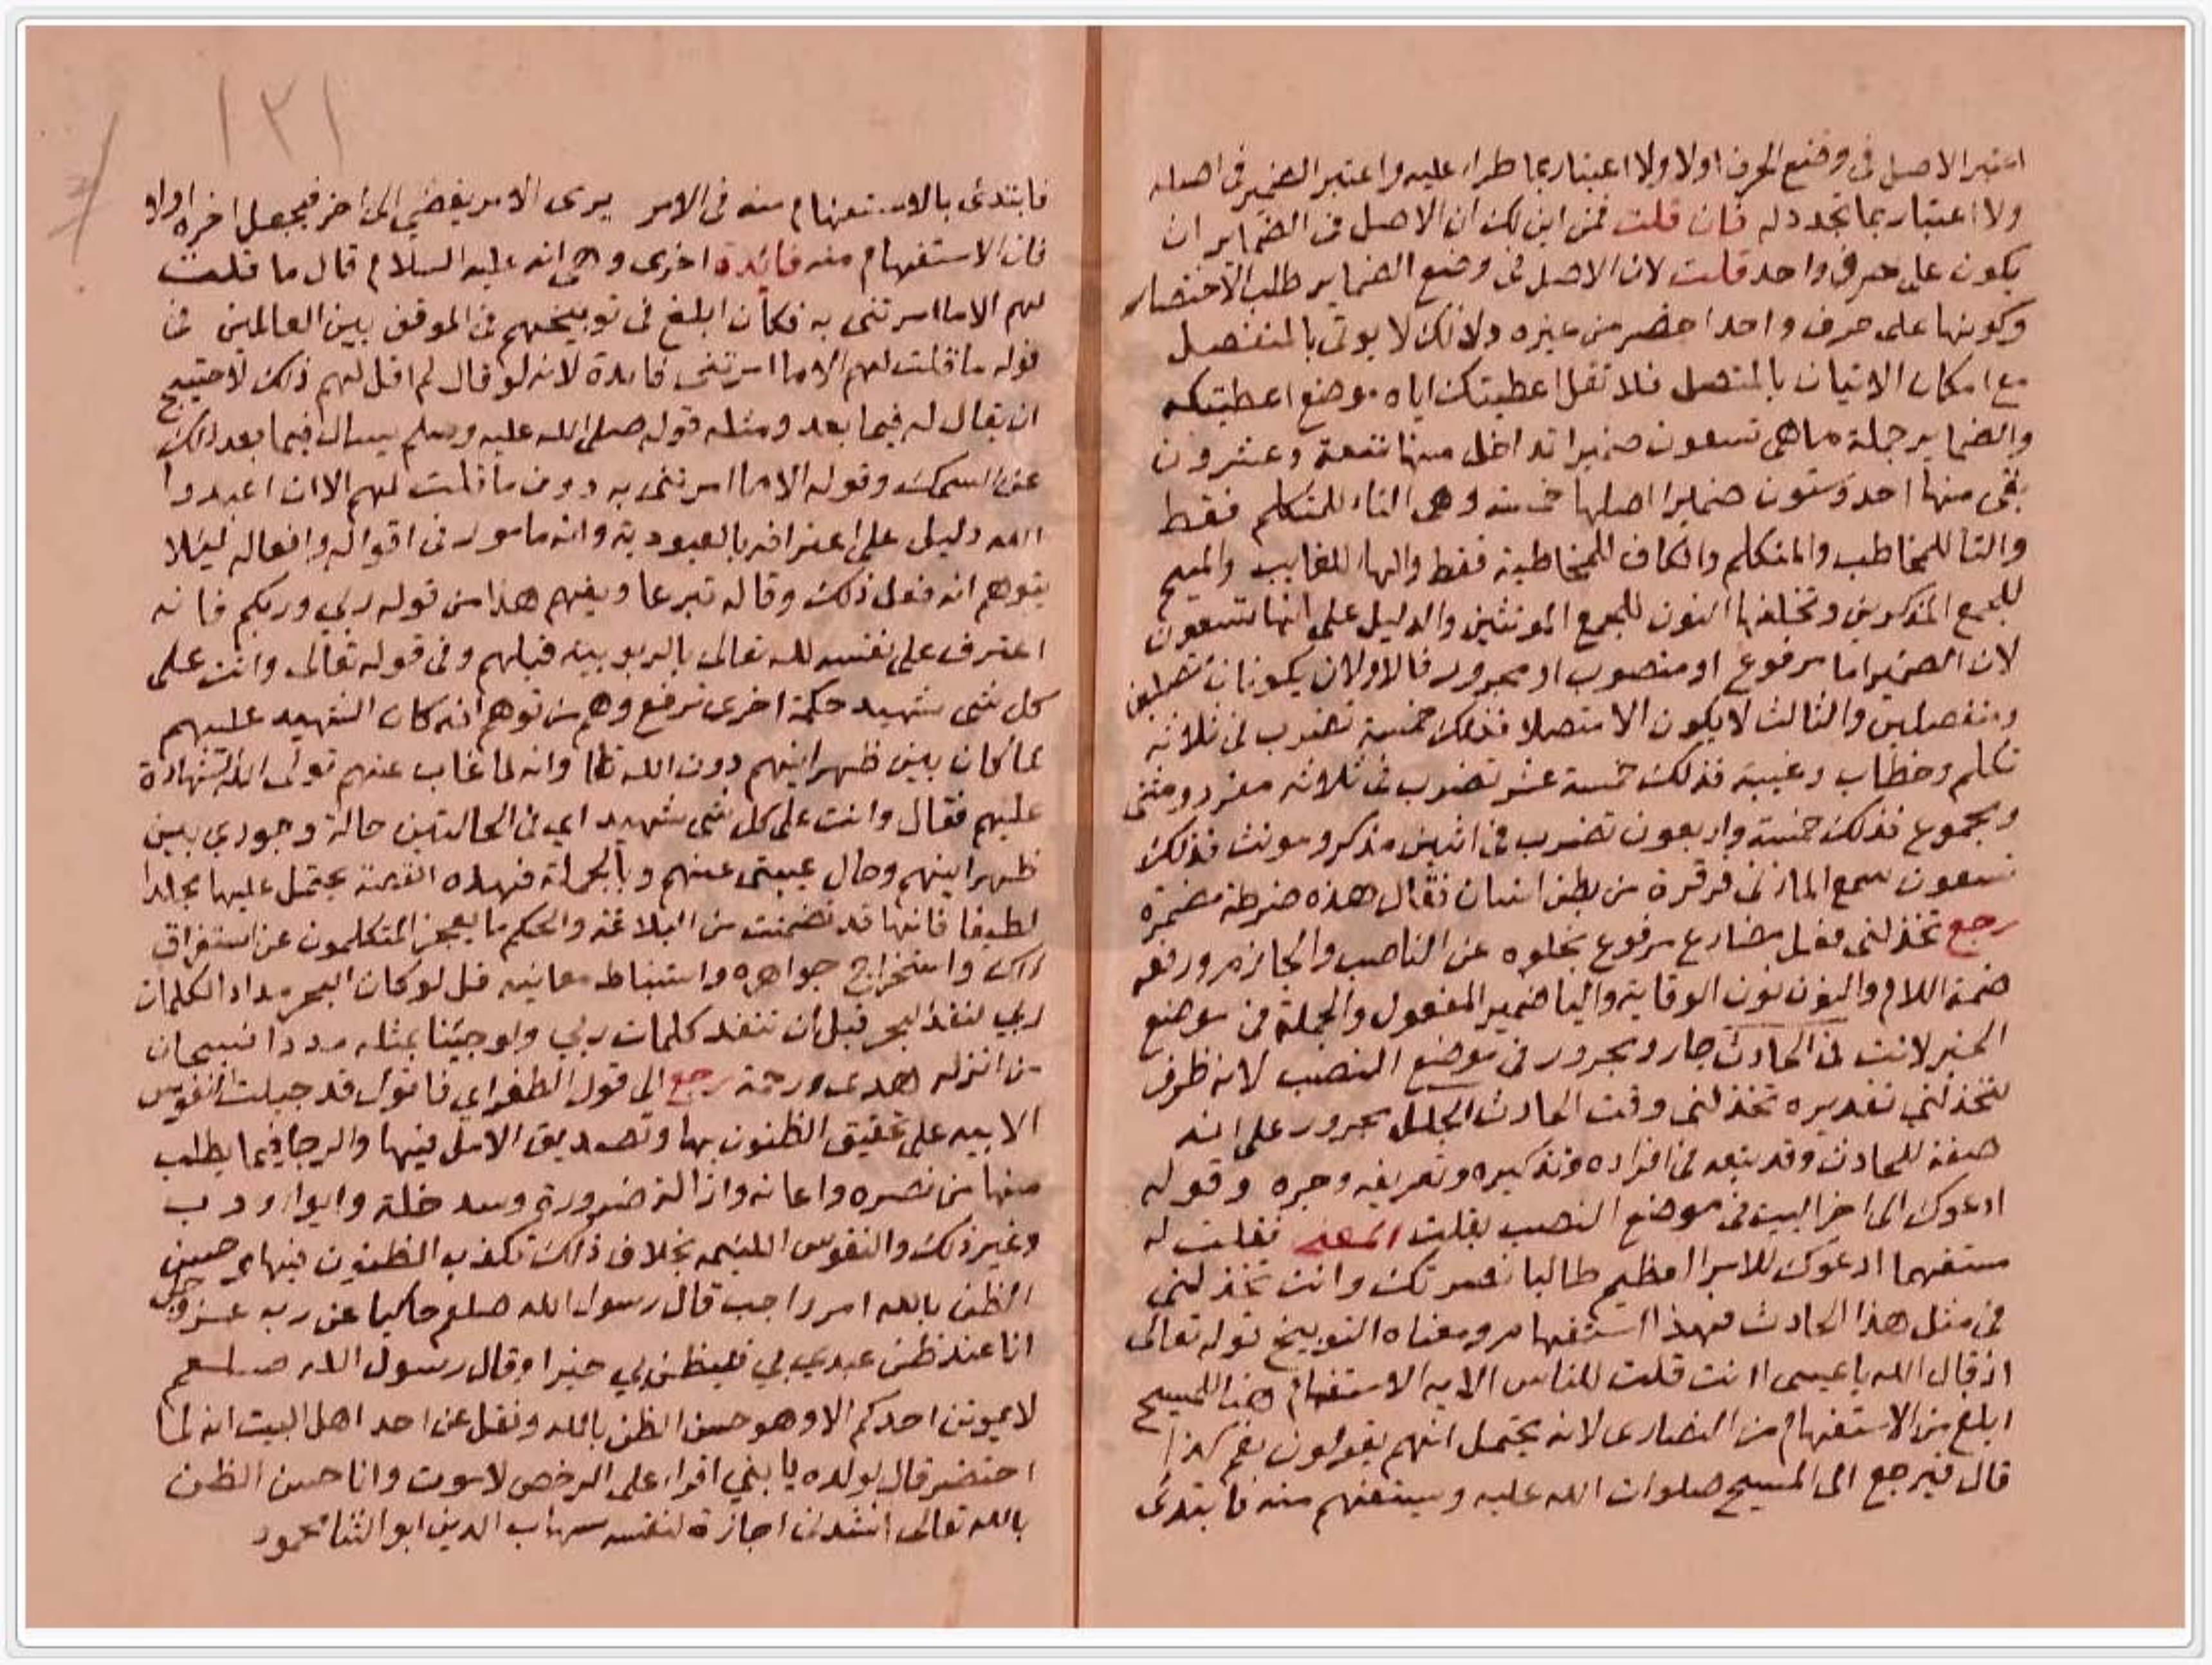 اعتبر الاصل فى وضع الحرف اولا ولا اعتبار بما طراء عليه واعتبر الضمير فى اصله
ولا اعتبار بما تجدد له فان قلت فمن اين لك ان الاصل فى الضماير ان
يكون على حرف واحد قلت لان الاصل فى وضع الضماير طلب الاختصار
وكونها على حرف واحد اخصر من غيره ولذلك لا يوتى بالمنفصل
مع امكان الاتيان بالمتصل فلا تقل اعطيتك اياه موضع اعطيتكه
والضماير جملة ما هى تسعون ضميرا تداخل منها تسعة وعشرون
بقى منها احد وستون ضميرا اصلها خمسة وهى التاء للمتكلم فقط
والتا للمخاطب والمتكلم والكاف للمخاطبة فقط والهاء للغايب والميم
للجمع المذكرين وتخلفها النون للجمع المونثين والدليل على انها تسعون
لان الضمير اما مرفوع او منصوب او مجرور فالاولان يكونان متصلين
ومنفصلين والثالث لا يكون الا متصلا فذلك خمسة تضرب فى ثلاثة
تكلم وخطاب وغيبة فذلك خمسة عشر تضرب فى ثلاثة مفرد ومثنى
ومجموع فذلك خمسة واربعون تضرب فى اثنين مذكر ومونث فذلك
تسعون سمع المازنى قرقرة من بطن انسان فقال هذه ضرطة مضمرة
رجع تخذلنى فعل مضارع مرفوع بخلوه عن الناصب والجازم ورفعه
ضمة اللام والنون نون الوقاية واليا ضمير المفعول والجملة فى موضع
الخبر لانت فى الحادث جار ومجرور فى موضع النصب لانه ظرف
لتخذلني تقديره تخذلنى وقت الحادث الجلل مجرور على انه
صفة للحادث وقد يتعه فى افراده وتذكيره وتعريفه وجره وقوله
ادعوك الى اخر البيت فى موضع النصب بقلت المعنى فقلت له
مستفهما ادعوك للامر العظيم طالبا نصرتك وانت تخذلنى
فى مثل هذا الحادث فهذا استفهام ومعناه التوبيخ قوله تعالى
اذ قال الله يا عيسى اانت قلت للناس الايه الاستفهام هنا للمسيح
ابلغ من الاستفهام من النصارى لانه يحتمل انهم يقولون نعم كذا
قال فيرجع الى المسيح صلوات الله عليه ويستفهم منه فابتدى
١٢١
فابتدئ بالاستفهام منه فى الامر يرى الامر يفضي الى اخر فيجعل اخره اولا
فان الاستفهام منه فائدة اخرى وهى انه عليه السلام قال ما قلت
لهم الا ما امرتنى به فكان ابلغ فى توبيخهم فى الموقف بين العالمين فى
قوله ما قلت لهم الا ما امرتنى فايدة لانه لو قال لم اقل لهم ذلك لاحتيج
ان يقال له فيما بعد ومثله قوله صلى الله عليه وسلم يسال فيما بعد ذلك
عن السمك وقوله الا ما امرتنى به دون ما قلت لهم الا ان اعبدوا
الله دليل على اعترافه بالعبودية وانه مامور فى اقواله وافعاله ليلا
يتوهم انه فعل ذلك وقاله تبرعا ويفهم هذا من قوله ربي وربكم فانه
اعترف على نفسه لله تعالى بالربوبية قبلهم وفى قوله تعالى وانت على
كل شى شهيد حكمة اخرى ترفع وهم من توهم انه كان الشهيد عليهم
لما كان بين ظهرانيهم دون الله تعا وانه لما غاب عنهم تولى الله الشهادة
عليهم فقال وانت على كل شى شهيد اى فى الحالتين حالة وجودي بين
ظهرانيهم وحال غيبتى عنهم وبالجملة فهذه القصة يحتمل عليها مجلدا
لطيفا فانها قد تضمنت من البلاغة والحكم ما يعجز المتكلمون عن استغراق
ذلك واستخراج جواهره واستنباط معانيه قل لو كان البحر مدادا لكلمات
ربي لنفد البحر قبل ان تنفد كلمات ربي ولو جيئنا بمثله مددا فسبحان
من انزله هدى ورحمة رجع الى قول الطغراي فاقول قد جبلت النفوس
الابيه على تحقيق الظنون بها وتصديق الامل فيها والرجا فيما يطلب
منها من نصره واعانه وازالة ضرورة وسد خلة وايواء
وغير ذلك والنفوس اللئيمه بخلاف ذلك تكذب الظنون فيها حسن
الظن بالله امر واجب قال رسول الله صلعم حاكيا عن ربه عز وجل
انا عند ظن عبدي بي فليظن بي خيرا وقال رسول الله صلعم
لا يموتن احدكم الا وهو حسن الظن بالله ونقل عن احد اهل البيت انه لما
احتضر قال لولده يا بني اقراء على الرخص لاموت وانا حسن الظن
بالله تعالى انشدنى اجازة لنفسه شهاب الدين ابو الثنا محمود